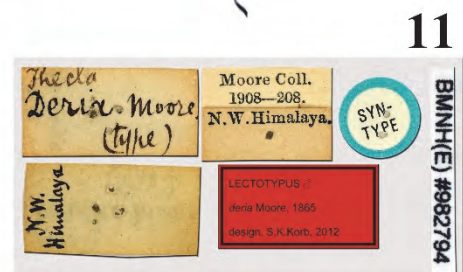 11
Thecla
Deria Moore.
(type)
Moore Coll.
1908—208.
N.W.Himalaya.
SYN-
TYPE
BMNH(E) #982794
N.W.
Himalaya
LECTOTYPUS ♂
deria Moore, 1865
design. S.K.Korb, 2012